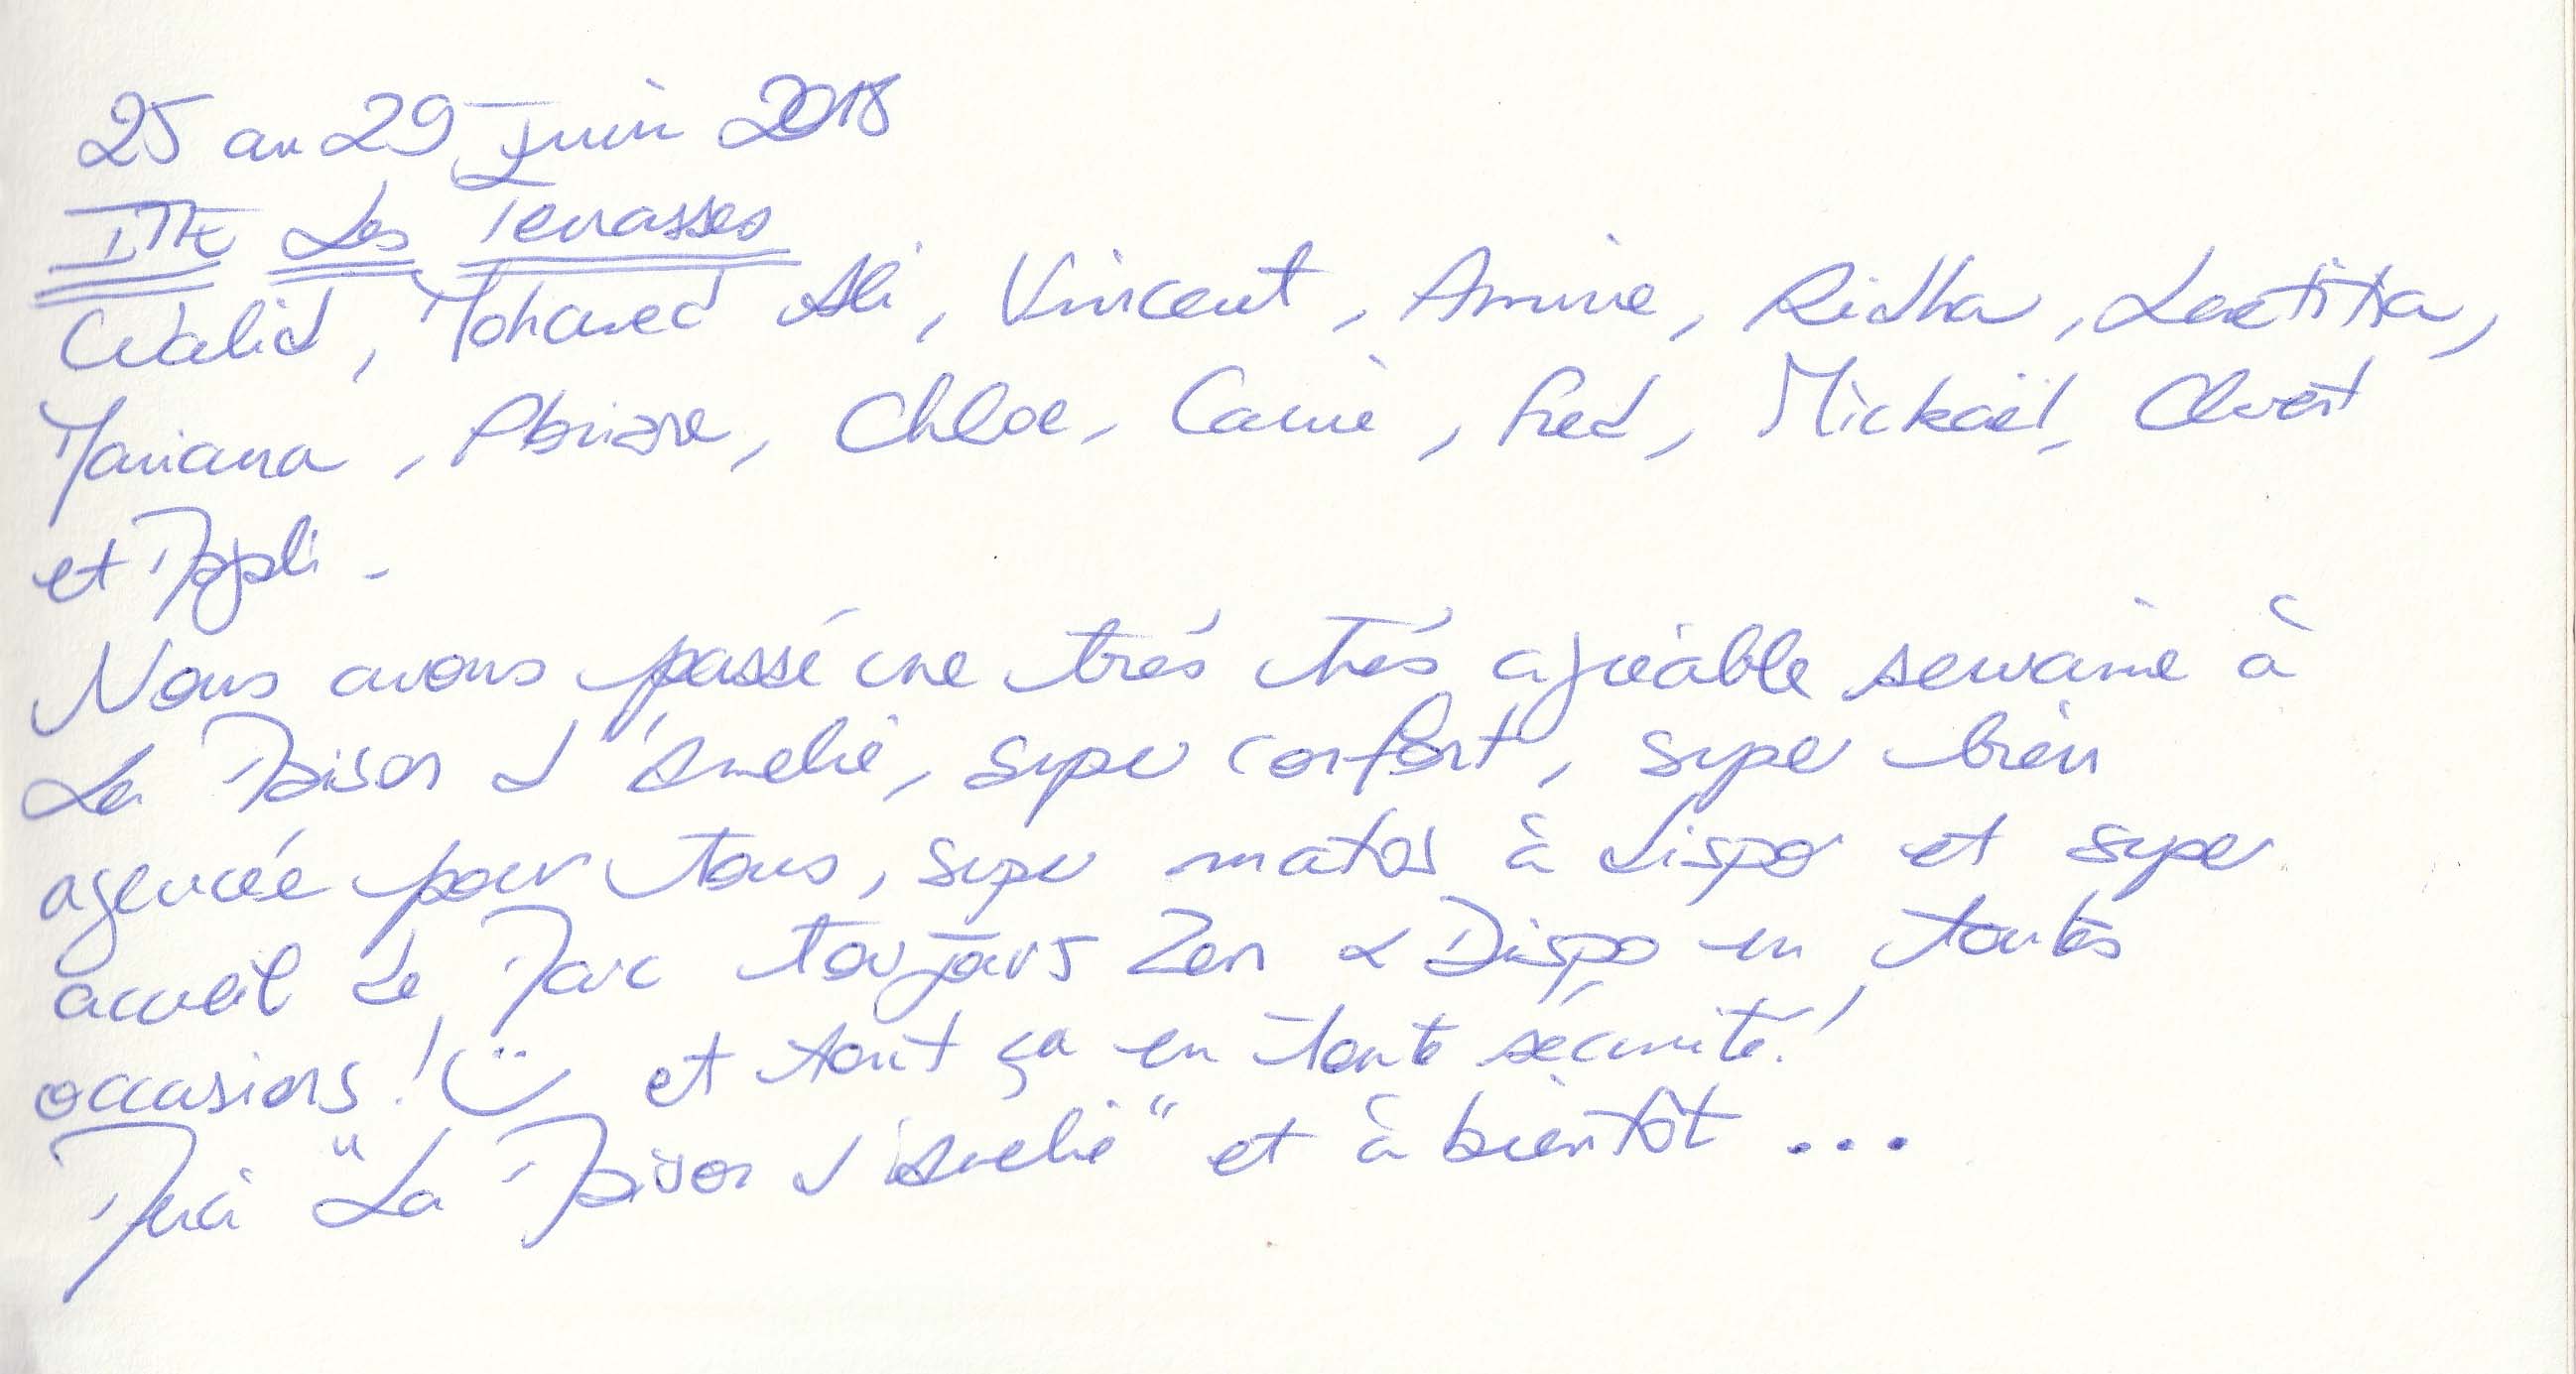 25 au 29 Juin 2018
ITE Les Terrasses
Walid, Mohamed Ali, Vincent, Amine, Ridha, Laetitia,
Mariana, Chloe, Carine, Fred, Mickaël,
et
Nous avons passé une très très agréable semaine à
La Maison d'Amelie, super confort, super bien
agencée pour tous, super matos à dispo et super
accueil de Marc toujours Zen & Dispo en toutes
occasions ! et tout ça en toute sécurité !
Merci "La Maison d'Amelie" et à bientôt ...